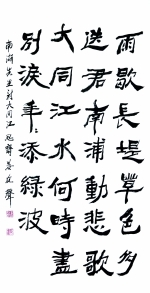 雨歇長堤草色多
送君南浦動悲歌
大同江水何時盡
別淚年々添綠波